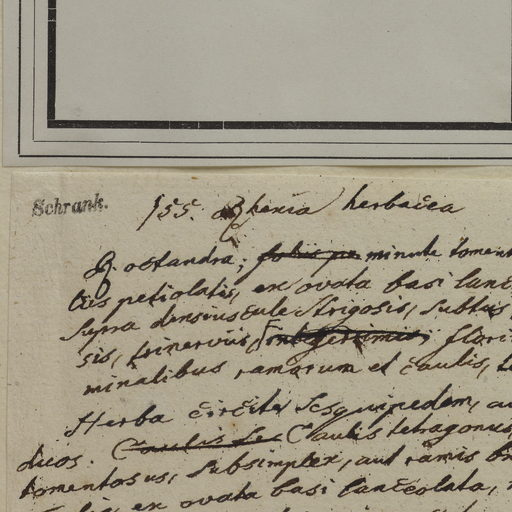 Schrank.
155. Rhexia herbacea
R. octandra; foliis pe minute toment
tris petiolatis, ex ovata basi lanc
supra densiuscule strigosis, subtus
sis, trinerviis, integerrimis; flori
minalibus ramorum et caulis,
Herba circiter sesquipedem, au
duos. Caulis se Caulis tetragonus,
tomentosus, subsimplex, aut ramis br
ex ovata basi lanceolata,